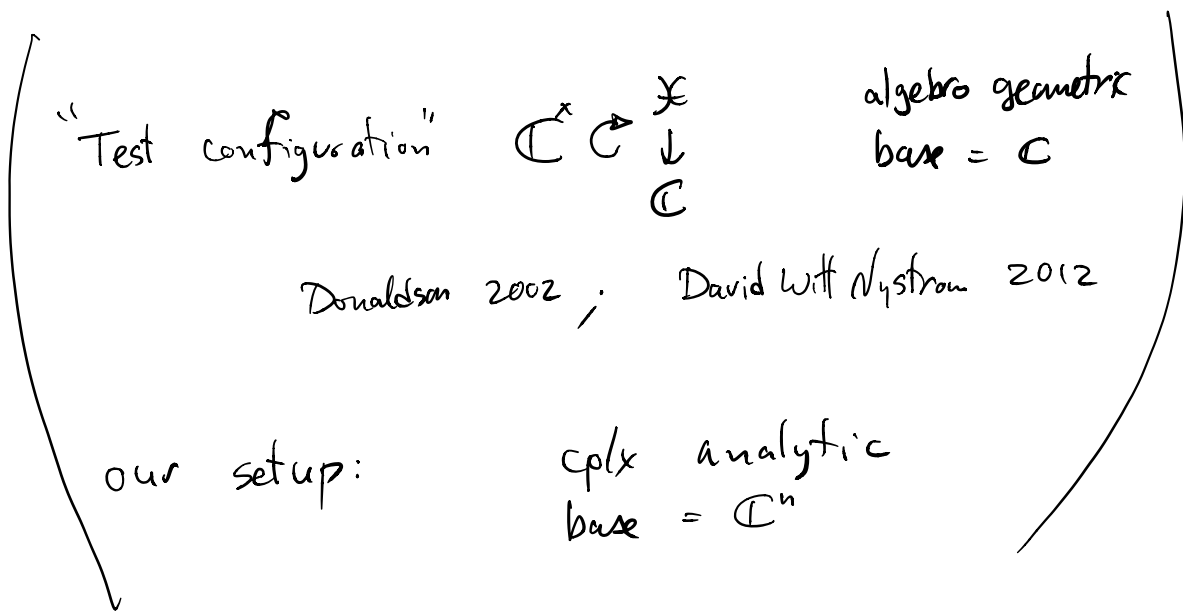 "Test configuration" ℂ^× ↻ 𝔛 algebro geometric
↓ base = ℂ
ℂ
Donaldson 2002 ; David Witt Nystrom 2012
our setup: cplx analytic
base = ℂ^n